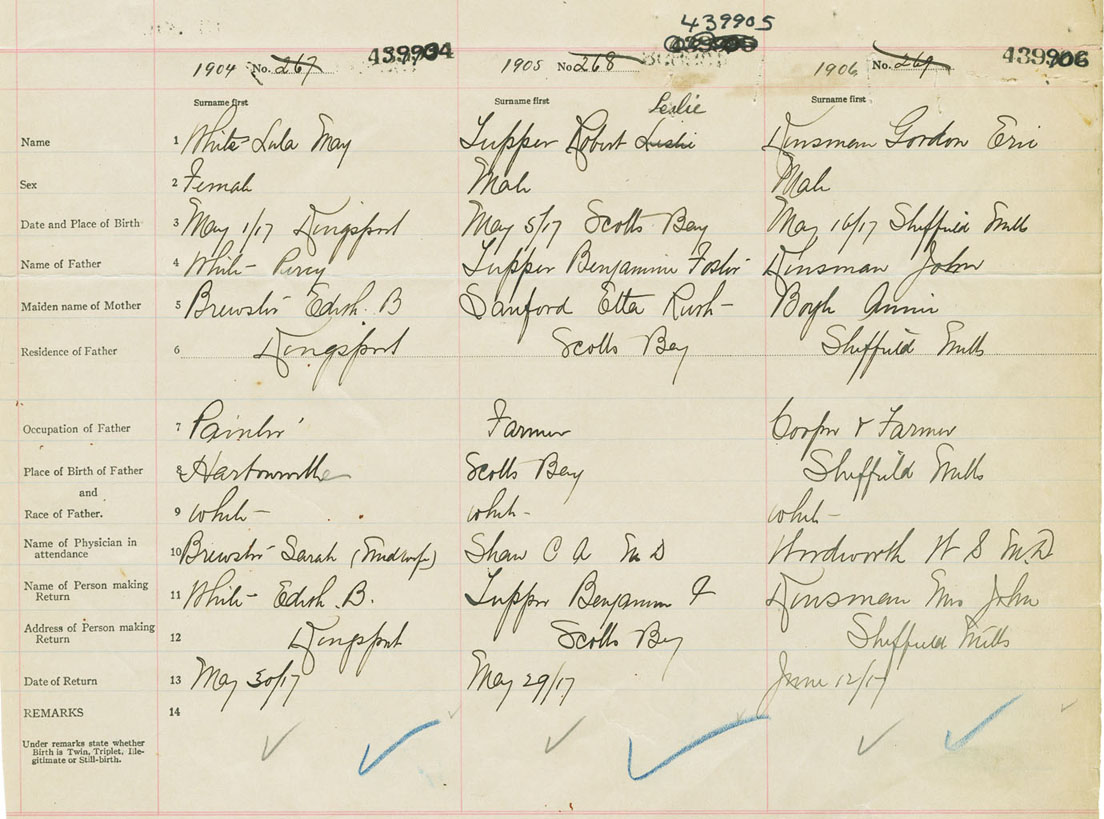 439905
439904 439906
1904 No. 267 1905 No. 268 1906 No. 269
Surname first Surname first Surname first
Leslie
Name 1 White Lula May Tupper Robert Leslie Kinsman Gordon Eric
Sex 2 Female Male Male
Date and Place of Birth 3 May 1/17 Kingsport May 5/17 Scotts Bay May 16/17 Sheffield Mills
Name of Father 4 White Percy Tupper Benjamin Foster Kinsman John
Maiden name of Mother 5 Brewster Edith B Sanford Etta Ruth Annie
Residence of Father 6 Kingsport Scotts Bay Sheffield Mills
Occupation of Father 7 Painter Farmer Cooper & Farmer
Place of Birth of Father 8 Scotts Bay Sheffield Mills
and
Race of Father. 9 white white white
Name of Physician in
attendance 10 Brewster Sarah (Midwife) Shaw C A M D Woodworth W S M.D.
Name of Person making
Return 11 White Edith B. Tupper Benjamin F Kinsman Mrs John
Address of Person making
Return 12 Kingsport Scotts Bay Sheffield Mills
Date of Return 13 May 30/17 May 29/17 June 12/17
REMARKS 14
Under remarks state whether
Birth is Twin, Triplet, Ille-
gitimate or Still-birth.